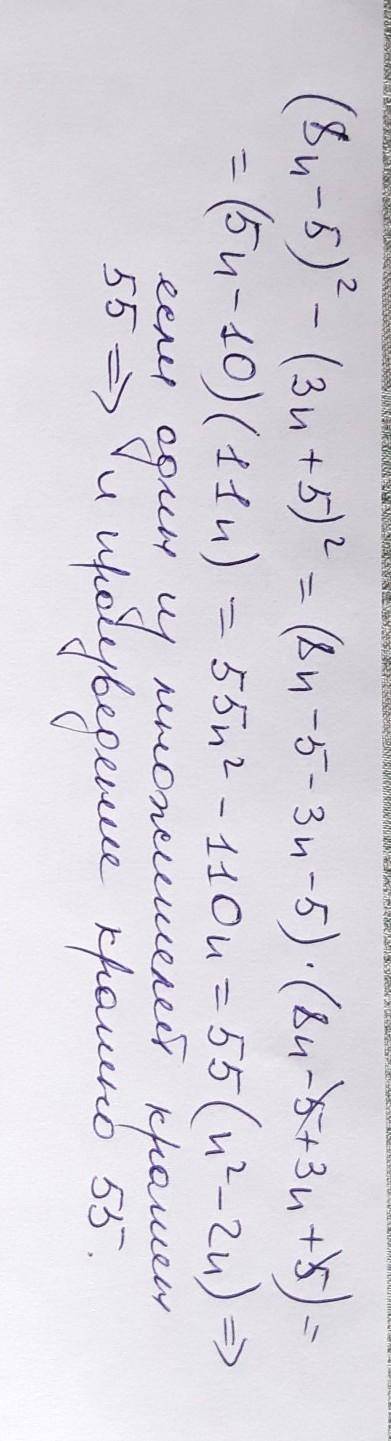 (8n-5)² - (3n+5)² = (8n-5-3n-5)·(8n-5+3n+5) =
= (5n-10)(11n) = 55n² - 110n = 55(n²-2n) =>
если один из множителей кратен
55 => и произведение кратно 55.